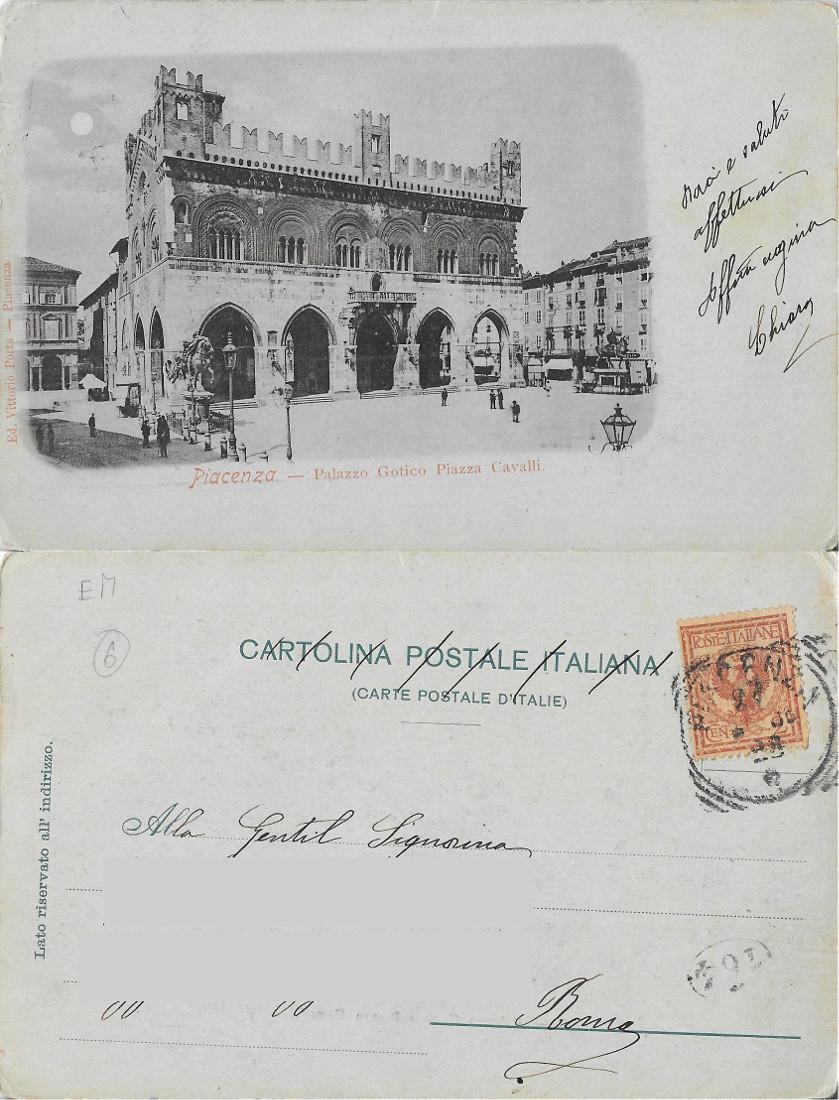 Baci e saluti
affettuosi
Aff.ma cugina
Chiara
Ed. Vittorio Porta — Piacenza
Piacenza — Palazzo Gotico Piazza Cavalli.
EM
6
CARTOLINA POSTALE ITALIANA
(CARTE POSTALE D'ITALIE)
POSTE ITALIANE
Lato riservato all' indirizzo.
Alla Gentil Signorina
Roma